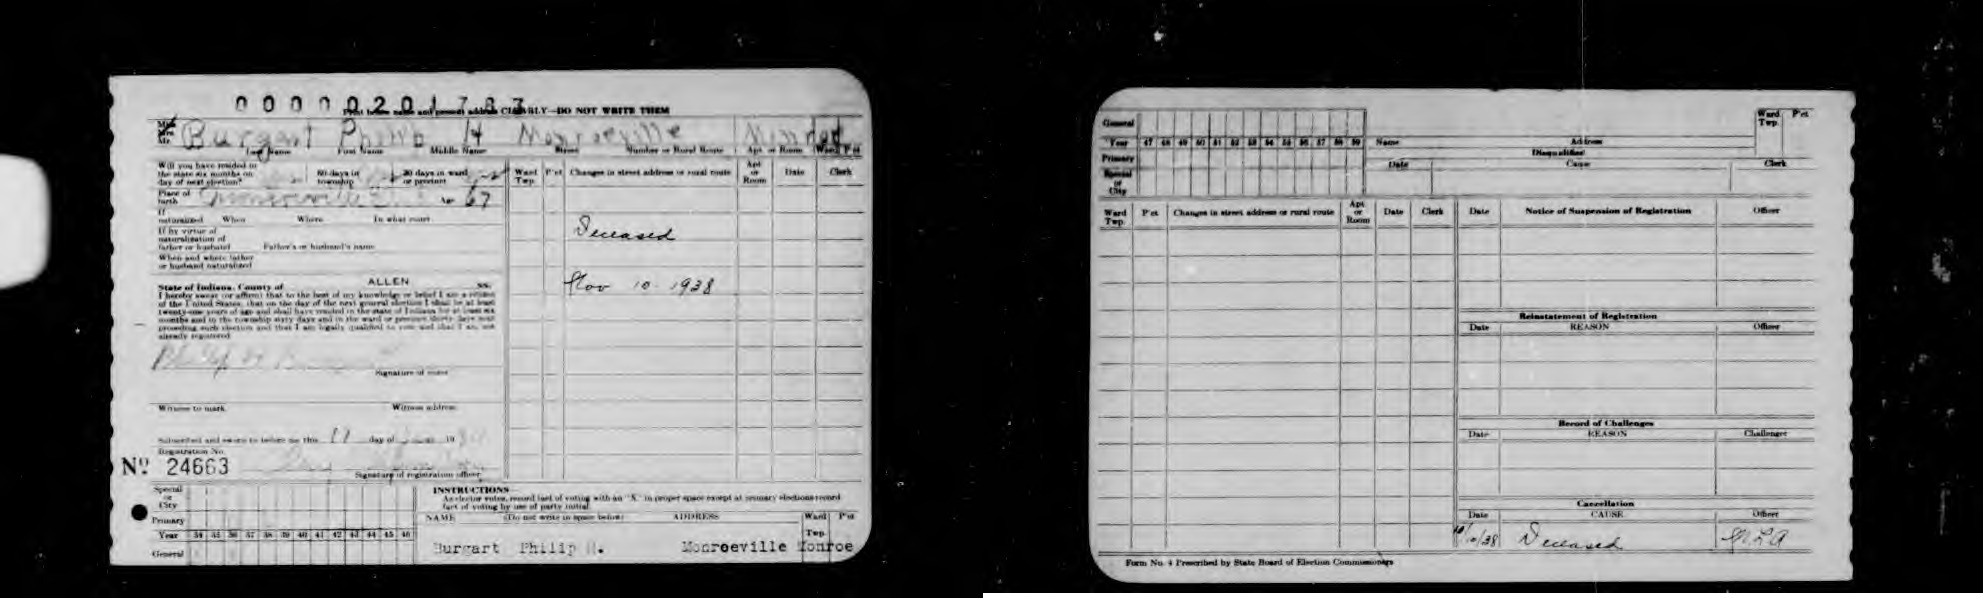 0000201787
Print below name and present address CLEARLY—DO NOT WRITE THEM
Mrs.
Mr. Burgart Philip H Monroeville Monroe
Last Name First Name Middle Name Street Number or Rural Route Apt. or Room Ward P'ct
Will you have resided in
the state six months on
day of next election? 60 days in
township 30 days in ward
or precinct
Place of
birth Monroeville Age 67
If
naturalized When Where In what court
If by virtue of
naturalization of
father or husband Father's or husband's name
When and where father
or husband naturalized
State of Indiana, County of ALLEN SS.
I hereby swear (or affirm) that to the best of my knowledge or belief I am a citizen
of the United States, that on the day of the next general election I shall be at least
twenty-one years of age and shall have resided in the state of Indiana for at least six
months and in the township sixty days and in the ward or precinct thirty days next
preceding such election and that I am legally qualified to vote and that I am not
already registered
Philip H Burgart
Signature of voter
Witness to mark Witness address
Subscribed and sworn to before me this 11 day of 19
Registration No.
No 24663
Signature of registration officer
Ward
Twp. P'ct Changes in street address or rural route Apt
or
Room Date Clerk
Deceased
Nov 10 1938
Special
or
City
Primary
Year 34 35 36 37 38 39 40 41 42 43 44 45 46
General
INSTRUCTIONS
As elector votes, record fact of voting with an "X" in proper space except at primary elections record
fact of voting by use of party initial.
NAME (Do not write in space below) ADDRESS Ward
Twp. P'ct
Burgart Philip H. Monroeville Monroe
General
Year 47 48 49 50 51 52 53 54 55 56 57 58 59
Primary
Special
or
City
Name Address
Ward
Twp. P'ct
Disqualified
Date Cause Clerk
Ward
Twp. P'ct Changes in street address or rural route Apt
or
Room Date Clerk
Date Notice of Suspension of Registration Officer
Reinstatement of Registration
Date REASON Officer
Record of Challenges
Date REASON Challenger
Cancellation
Date CAUSE Officer
10/38 Deceased
Form No. 4 Prescribed by State Board of Election Commissioners